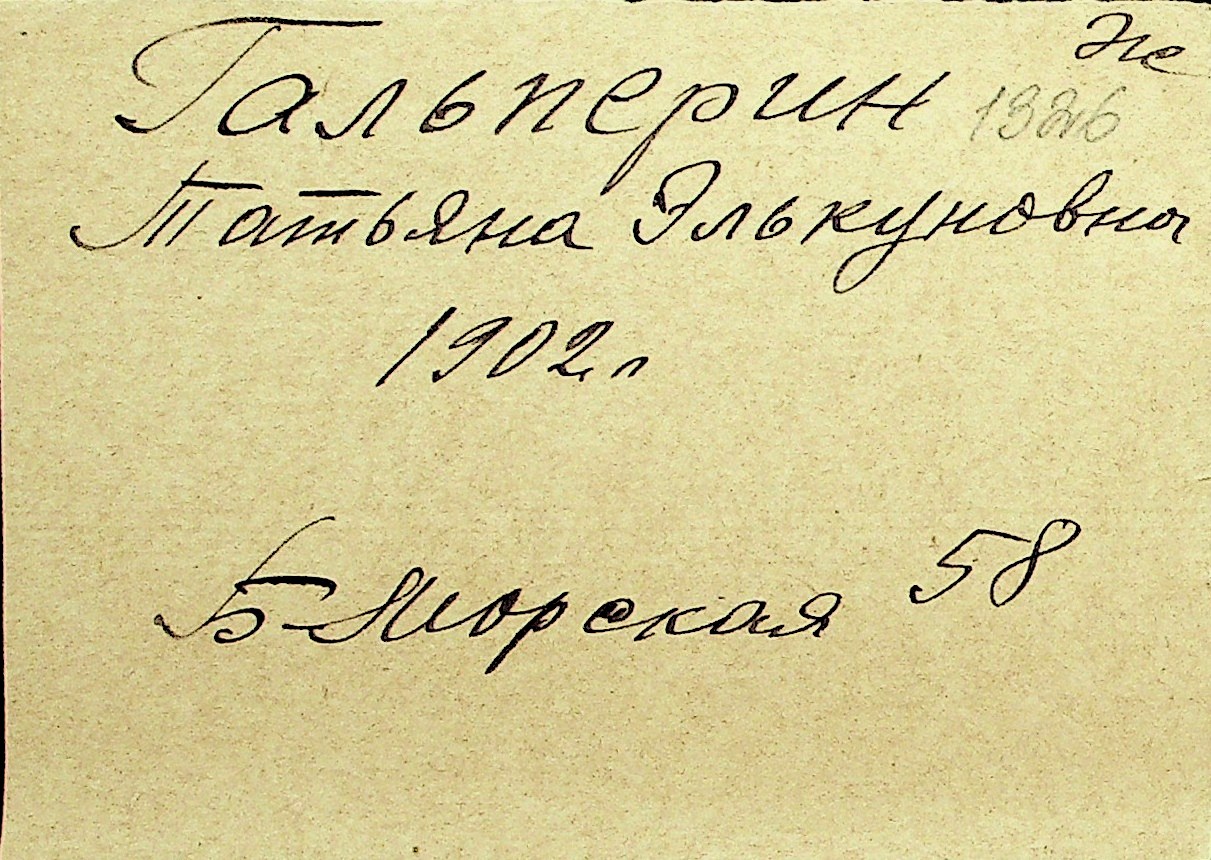 Гальперин 1326
Татьяна Элькуновна
1902 г
Б-Морская 58